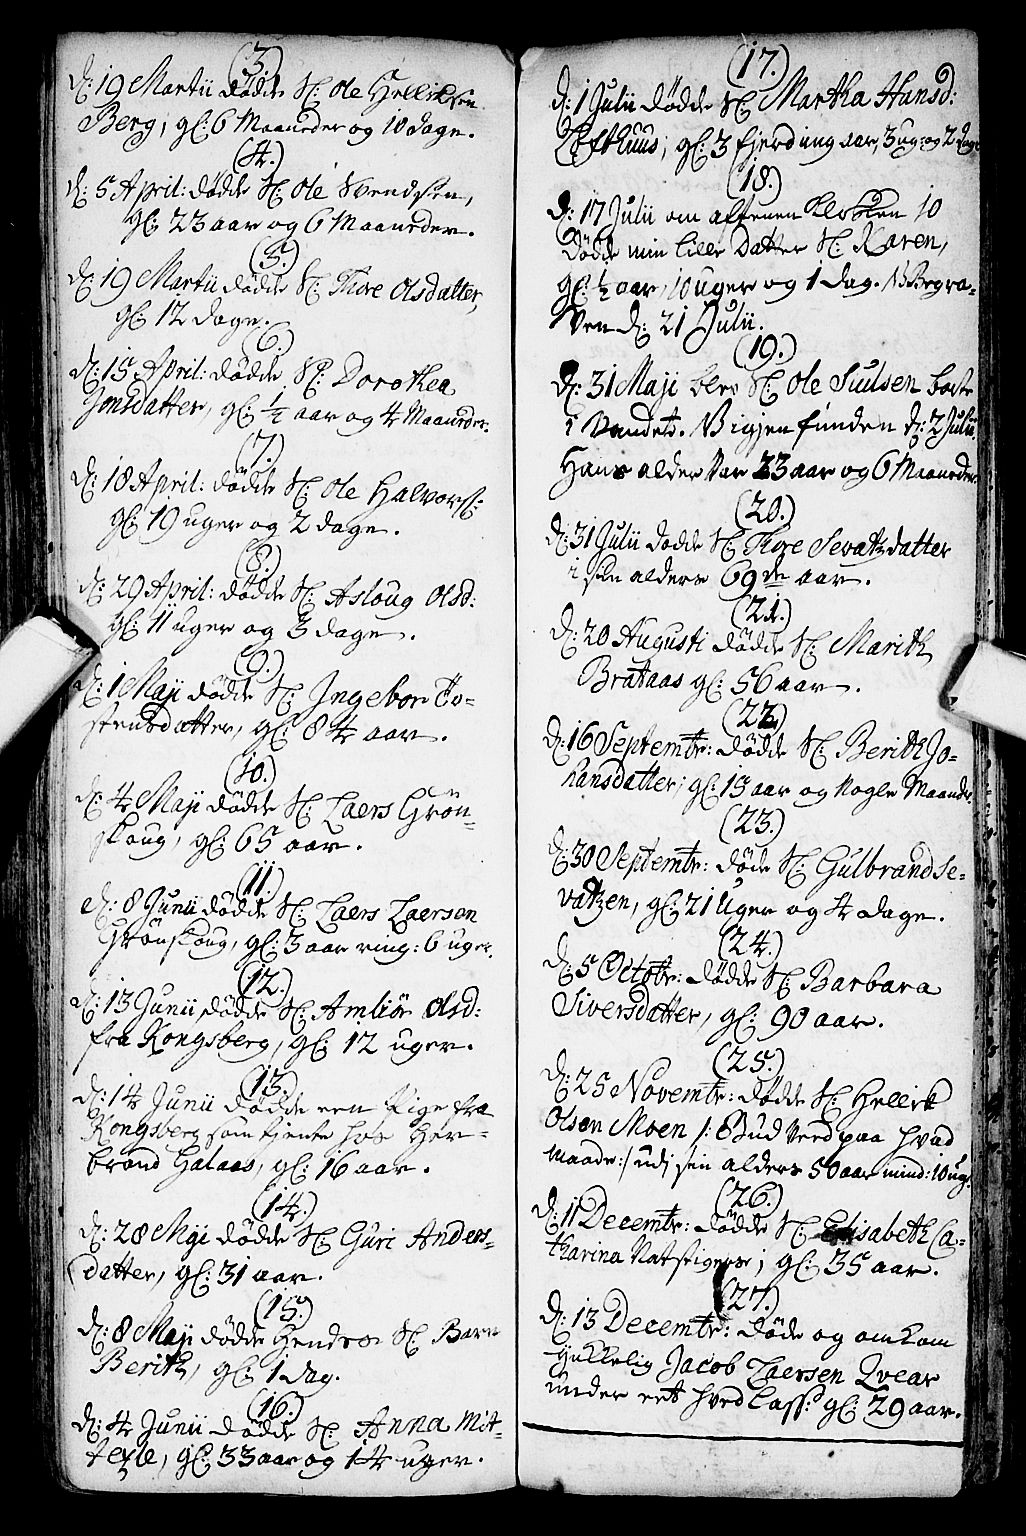 (3.)
d: 19 Martii dødde S: Ole Hellichsen
Berg, gl: 6 Maaneder og 10 dage.
(4.)
d: 5 April: dødde S: Ole Svendsen,
gl: 23 aar og 6 Maaneder.
(5.)
d: 19 Martii dødde S: Thore Olsdatter,
gl: 12 dage.
(6.)
d: 15 April: dødde S: Dorothea
Jonsdatter, gl: ½ aar og 4 Maaneder.
(7.)
d: 18 April: dødde S: Ole Halvors:
gl: 19 uger og 2 dage.
(8.)
d: 29 April: dødde S: Asloug Olsd:
gl: 11 uger og 3 dage.
(9.)
d: 1 Maji dødde S: Ingebor To-
stensdatter, gl: 84 aar.
(10.)
d: 4 Maji dødde S: Laers Grøn-
skoug, gl: 65 aar.
(11.)
d: 8 Junii dødde S: Laers Laersen
Grønskoug, gl: 3 aar ring: 6 uger.
(12.)
d: 13 Junii dødde S: Amliør Olsd:
fra Kongsberg, gl: 12 uger.
(13.)
d: 14 Junii dødde een Pige fra
Kongsberg som tjente hos Her-
brand Galaas, gl: 16 aar.
(14.)
d: 28 Maji dødde S: Guri Anders-
datter, gl: 31 aar.
(15.)
d: 8 Maji dødde S: Barn
Berith, gl: 1 dag.
(16.)
d: 4 Junii dødde S: Anna Mit-
gl: 33 aar og 14 uger.
(17.)
d: 1 Julii dødde S: Martha Hansd:
Lofthuus, gl: 3 fjerding aar, 3 ug: og 2 dage
(18.)
d: 17 Julii om aftenen Klokken 10
dødde min lille Datter S: Karen,
gl: ½ aar, 10 uger og 1 dag. Begra-
ven d: 21 Julii.
(19.)
d: 31 Maji blev S: Ole Siulsen borte
i Vandet. Bigjen funden d: 2 Julii.
Hans alder var 23 aar og 6 Maaneder
(20.)
d: 31 Julii dødde S: Thore Sevatzdatter
i sin alders 69de aar.
(21.)
d: 20 Augusti dødde S: Marith
Brataas gl: 56 aar.
(22.)
d: 16 Septembr: dødde S: Berith Jo-
hansdatter, gl: 13 aar og nogle Maaneder
(23.)
d: 30 Septembr: døde S: Gulbrand Se-
vatzen, gl: 21 uger og 4 dage.
(24.)
d: 5 Octobr: dødde S: Barbara
Siversdatter, gl: 90 aar.
(25.)
d: 25 Novembr: dødde S: Hellik
Olsen Moen /: Gud veed paa hvad
maade :/ udi sin alders 50 aar mind: 10 ug:
(26.)
d: 11 Decembr: dødde S: Elisabeth Ca-
tharina Natstigers; gl: 35 aar.
(27.)
d: 13 Decembr: døde og omkom
ynkkelig Jacob Laersen Qvear
under eet hved lass: gl: 29 aar.